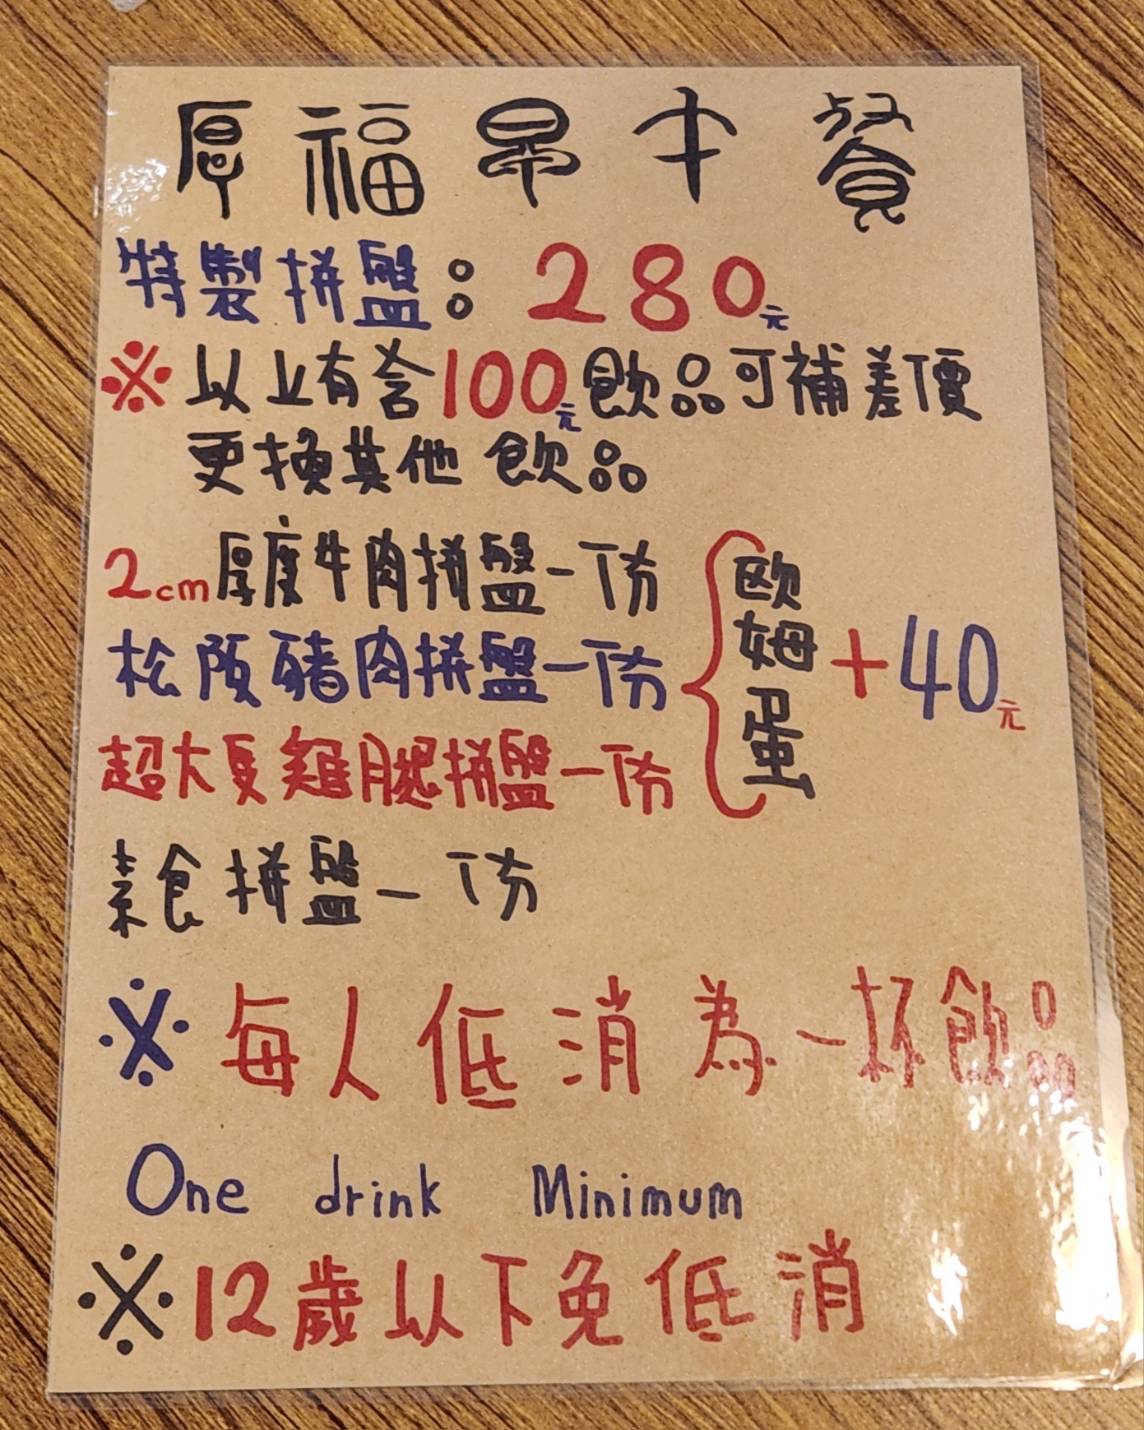 厚福早午餐
特製拼盤：280元
※以上有含100元飲品可補差價
更換其他飲品
2cm厚度牛肉拼盤一份
松阪豬肉拼盤一份
超大隻雞腿拼盤一份
歐姆蛋+40元
素食拼盤一份
※每人低消為一杯飲品
One drink Minimum
※12歲以下免低消